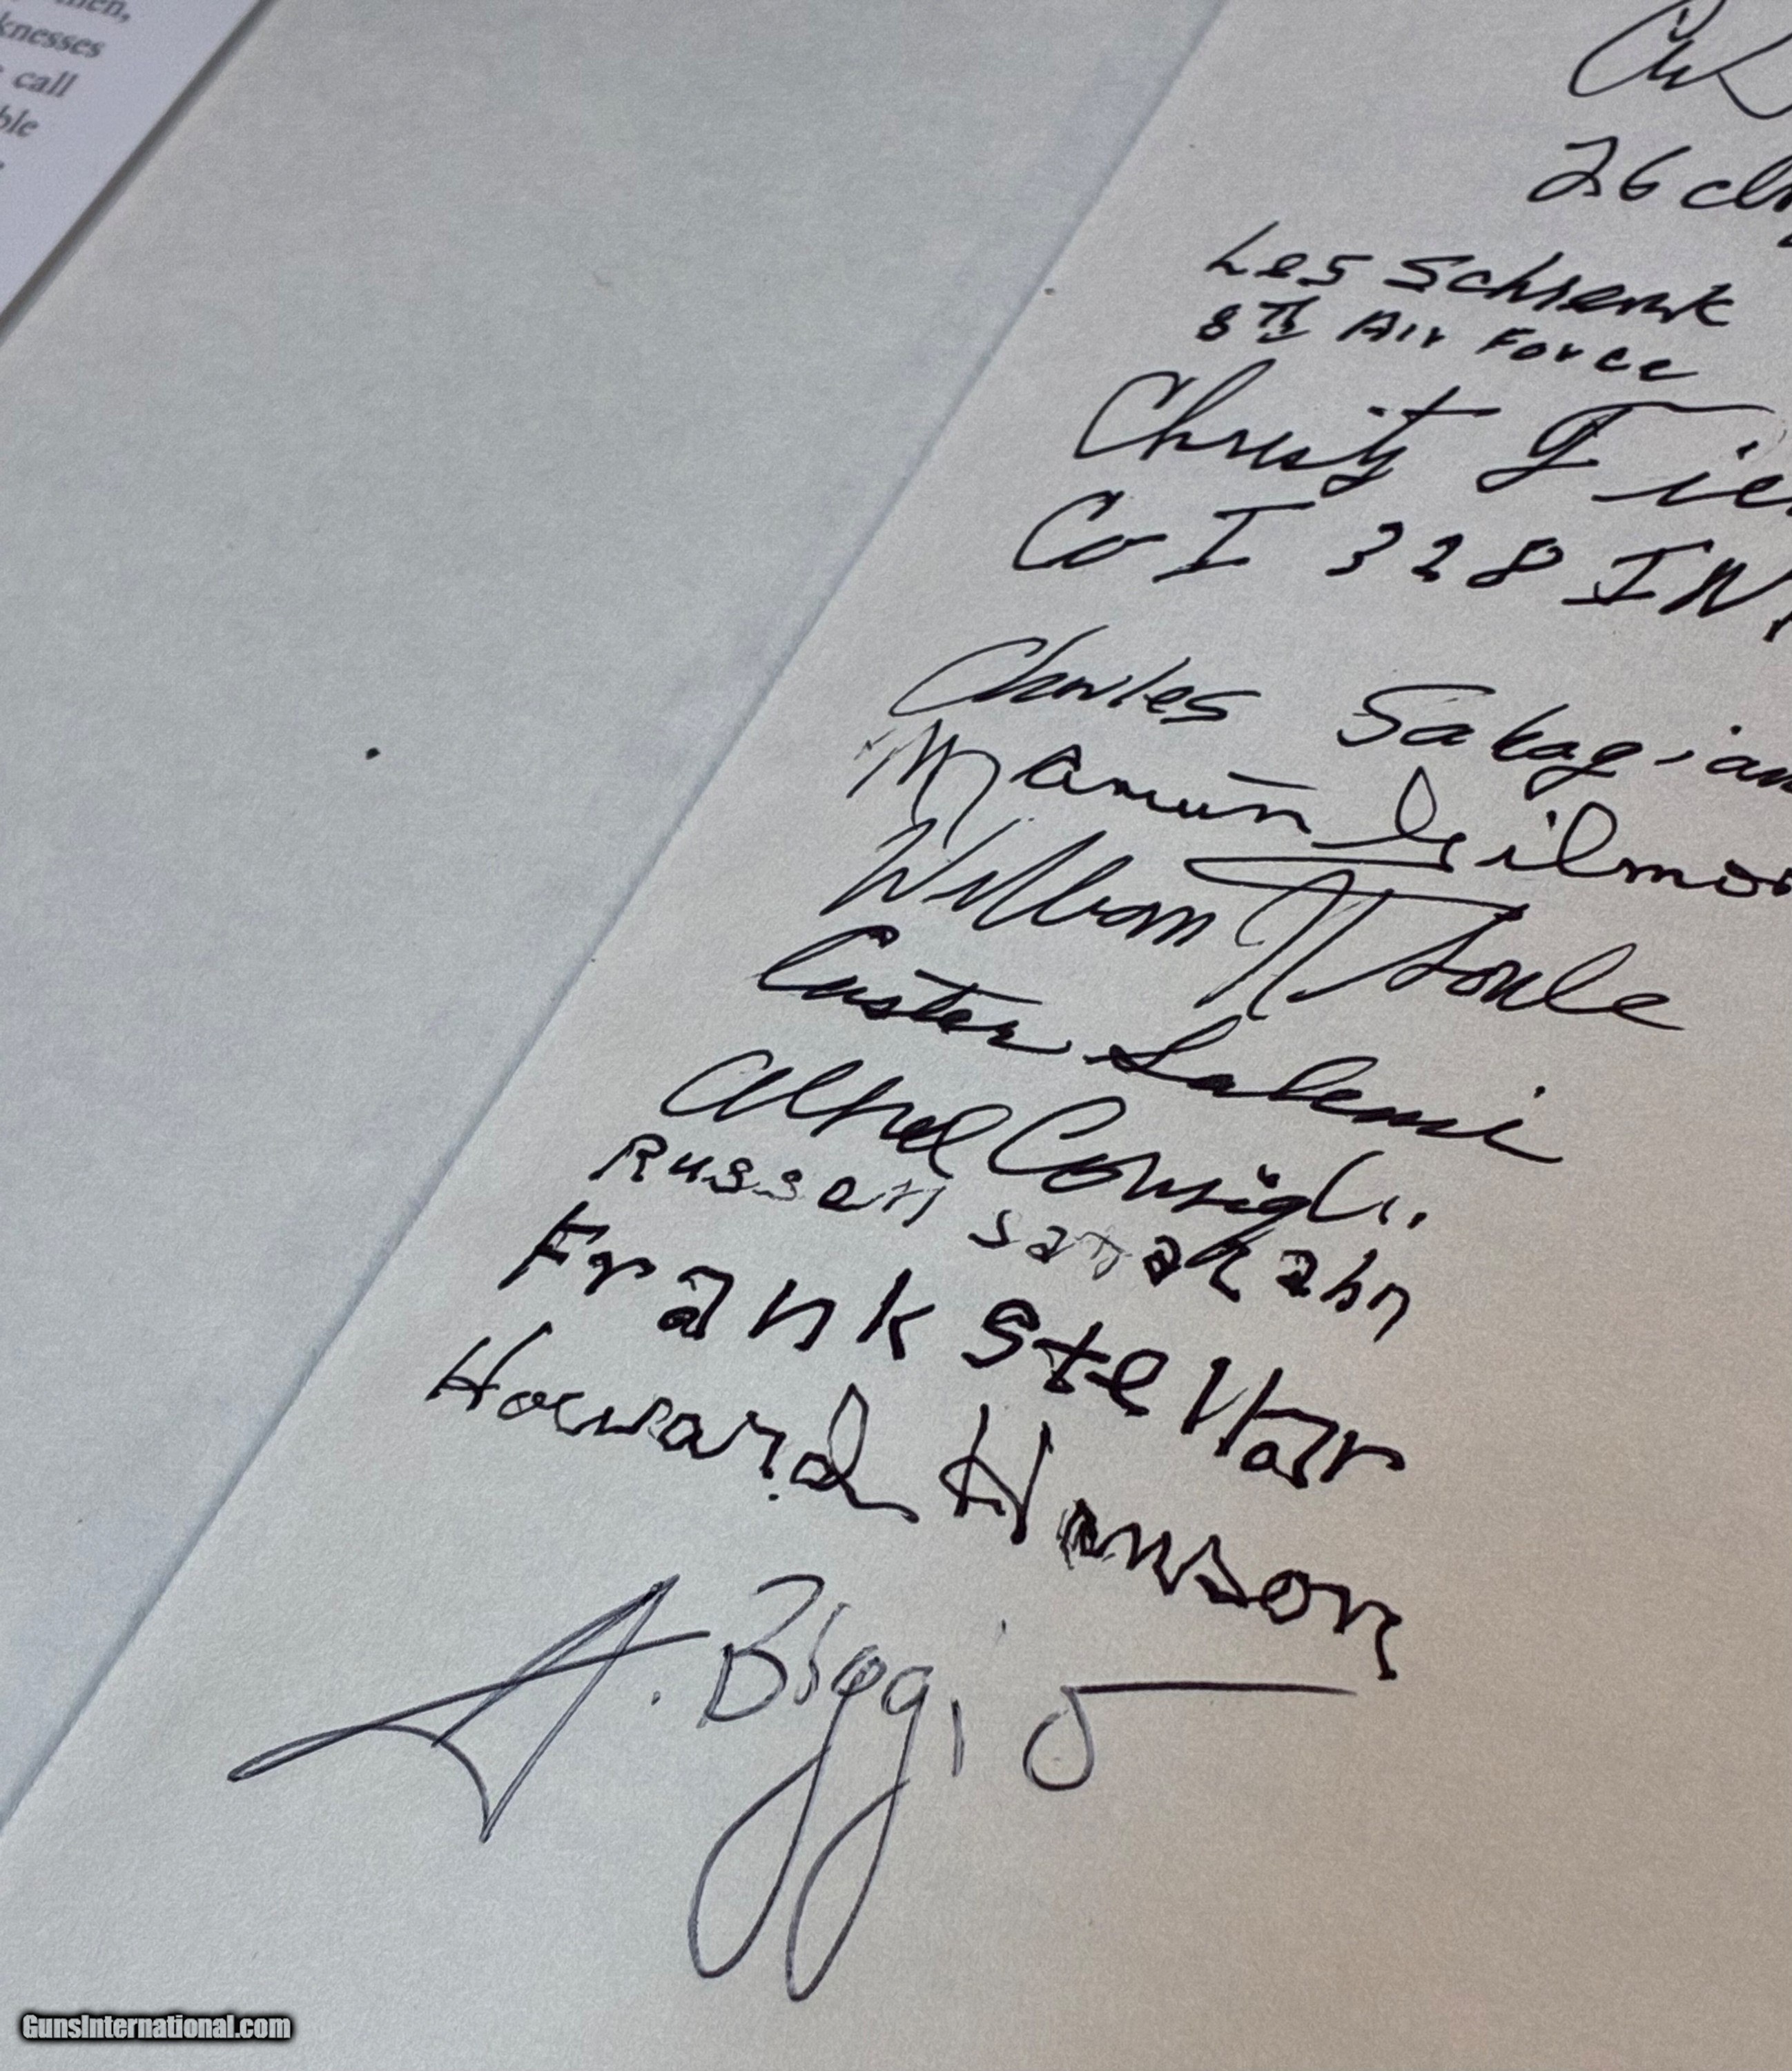 knesses
call
26
Les Schrenk
8th Air Force
Christy
Co I 328 IN
Charles Sahagian
Marvin Gilmor
William Soule
Custer Salemi
Alfred Consigli
Russell Sattazahn
Frank Stellar
Howard Hanson
A. Biggio
GunsInternational.com